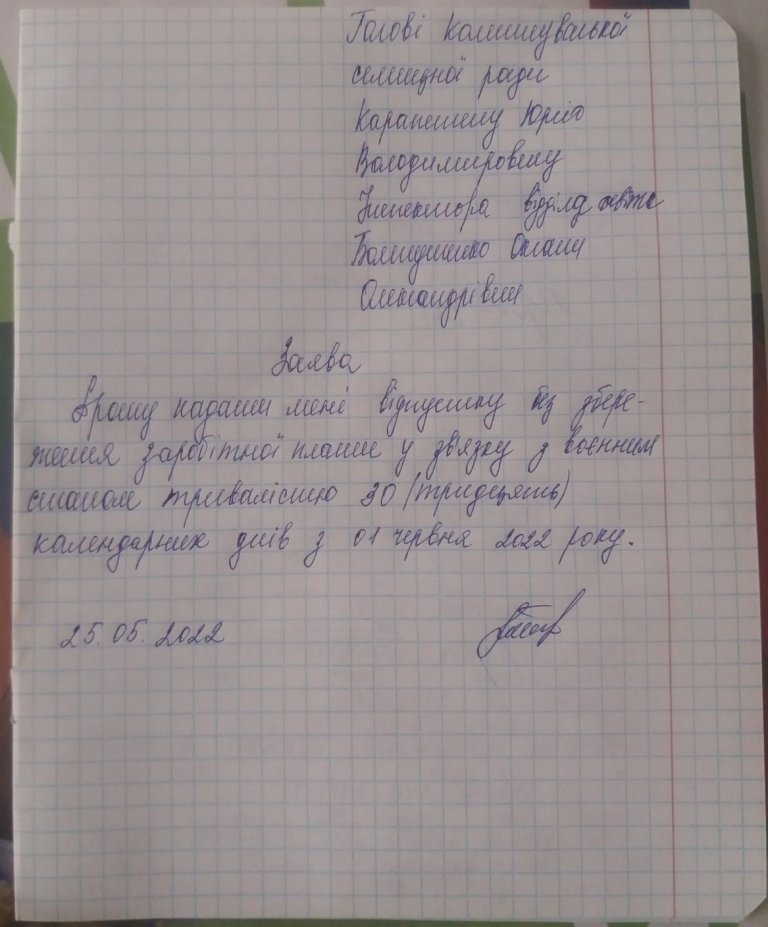 Голові Комишуваської
селищної ради
Карапетяну Юрію
Володимировичу
Інспектора відділу освіти
Олександрівни
Заява
Прошу надати мені відпустку без збере-
ження заробітної плати у зв'язку з воєнним
станом тривалістю 30 (тридцять)
календарних днів з 01 червня 2022 року.
25.05.2022